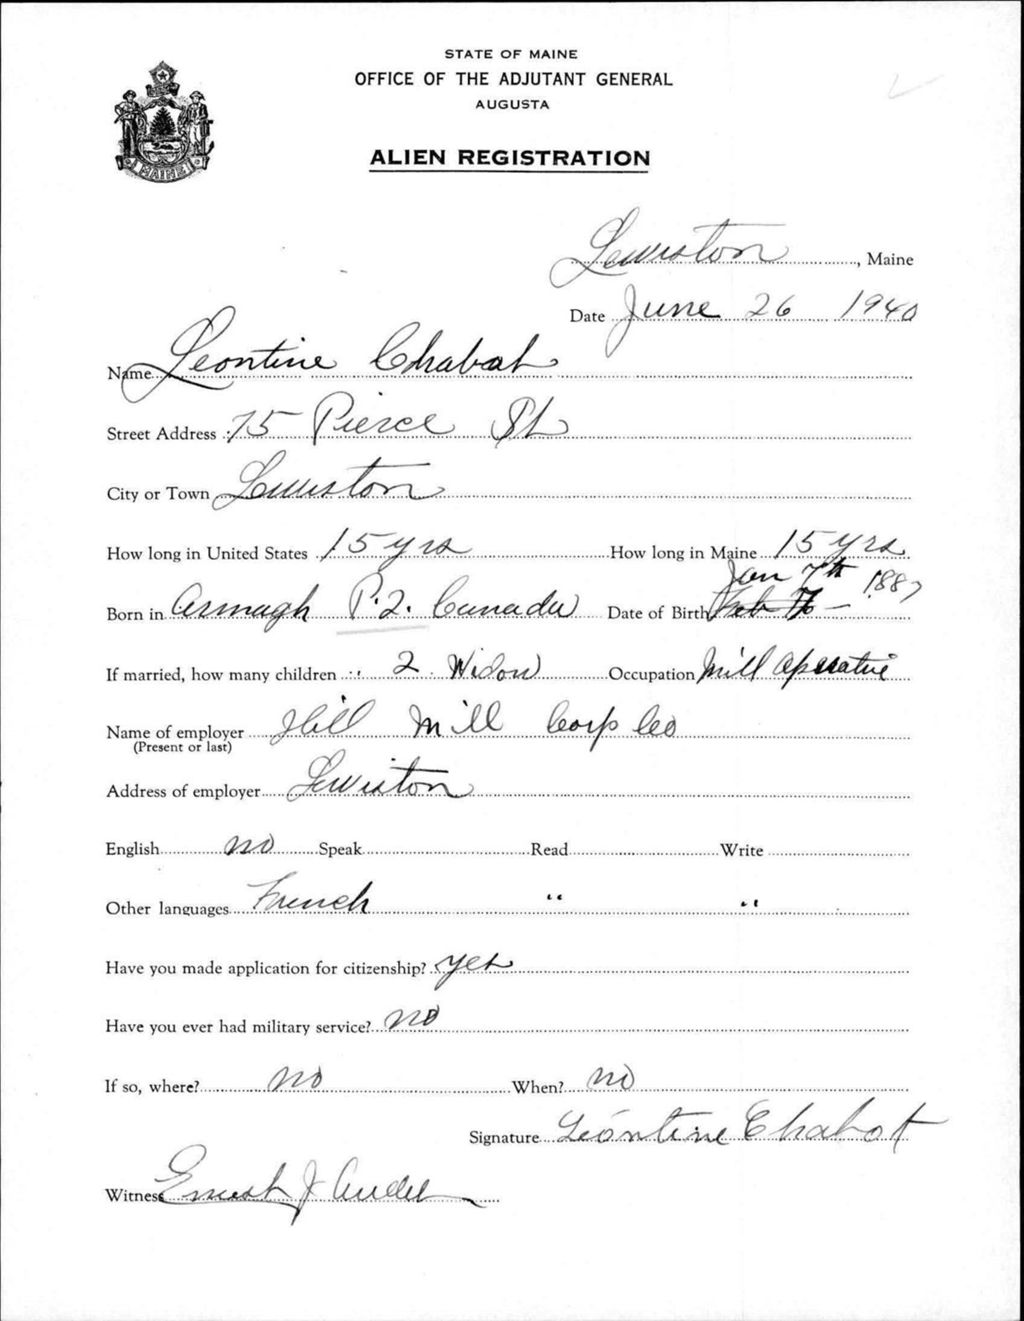 STATE OF MAINE
OFFICE OF THE ADJUTANT GENERAL
AUGUSTA
ALIEN REGISTRATION
MAINE
Lewiston, Maine
Date June 26 1940
Name Leontine Chabot
Street Address 75 Pierce St
City or Town Lewiston
How long in United States 15 yrs How long in Maine 15 yrs
Jan 7th 1887
Born in Armagh P.Q. Canada Date of Birth Feb 7
If married, how many children 2 Widow Occupation Mill Operative
Name of employer Hill Mill Corp Co
(Present or last)
Address of employer Lewiston
English no Speak Read Write
Other languages French " "
Have you made application for citizenship? yes
Have you ever had military service? no
If so, where? no When? no
Signature Léontine Chabot
Witness Ernest J Audet